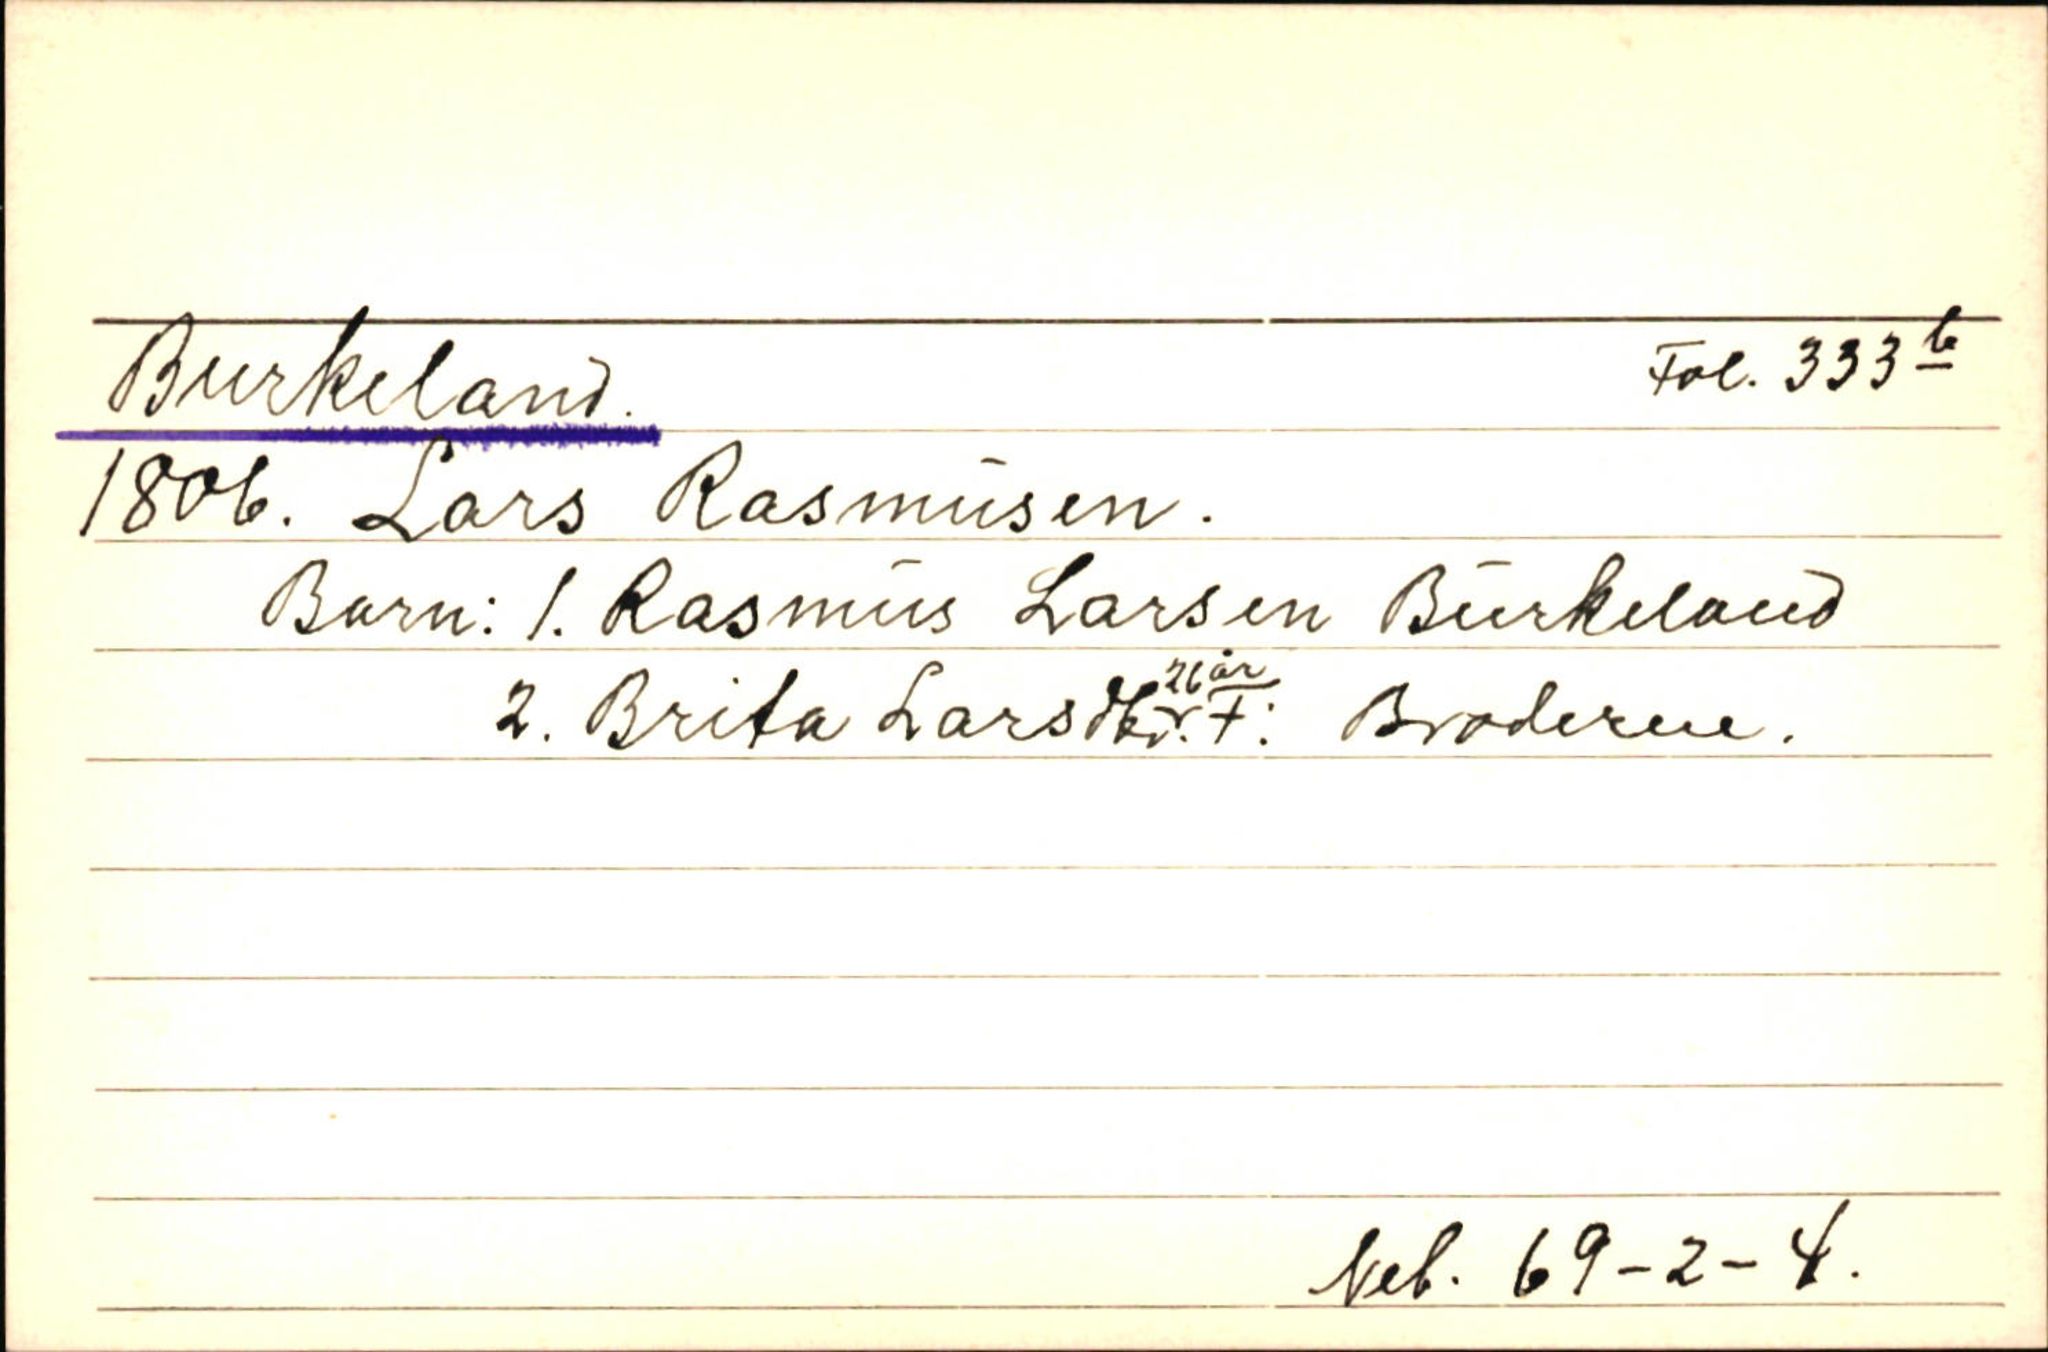 Burkeland. Fol. 333 b
1806. Lars Rasmusen.
Barn: 1. Rasmus Larsen Burkeland
2. Brita Larsdtr. 26 år F: Broderen.
Neb. 69-2-4.